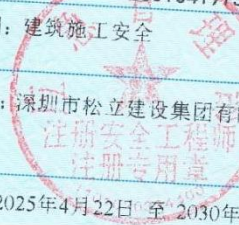 : 建筑施工安全
: 深圳市松立建设集团有
注册安全工程师
注册专用章
2025年4月22日 至 2030年